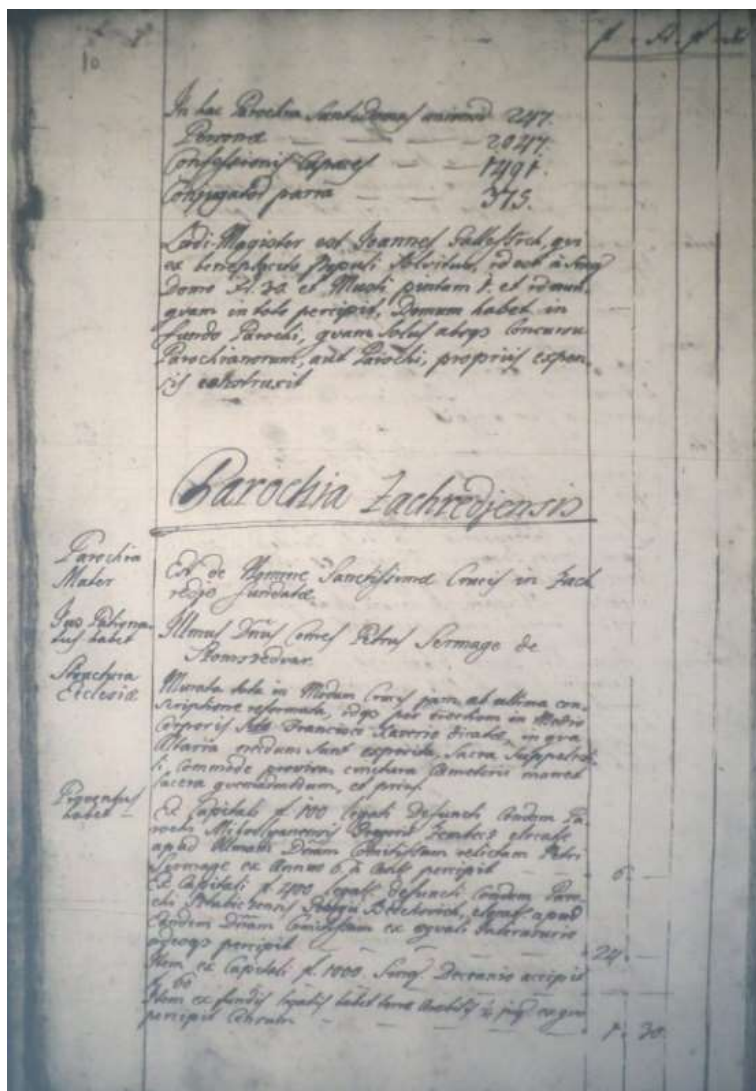 10
f. xr. f. xr.
In hac Parochia sunt Domus numero 247.
Personae — — — 2047.
Confessionis Capaces — — 1491.
Conjugatorum paria — — 375.
Ludi Magister est Joannes qui
ex beneplacito Populi solvitur, id est à Sing
Domo 30. et Musti pintam 1. et id nun-
quam in toto percipit, Domum habet in
fundo Parochi, quam solus absq Concursu
Parochianorum, aut Parochi, propriis expen-
sis extruxit
Parochia Zachredjensis
Parochia
Mater
Est de Nomine Sanctissimae Crucis in Zach
redje fundata
Jus Patrona-
tus habet
Illmus Dnus Comes Petrus Sermage de
Structura
Ecclesiae
Murata tota in Modum Crucis jam ab ultima con-
scriptione reformata, per in Medio
Corporis Sto Francisco Xaverio dicata, in qua
Altaria necdum sunt exposita, Sacra Suppellecti-
li commode provisa, cinctura Caemeterii manet
lacera quemadmodum, et prius.
Proventus
habet —
Ex Capitali f. 100 legati Defuncti condam Pa-
rochi elocati
apud Illmam Dnam Comitissam relictam Petri
Sermage ex Annuo 6 p percipit — 6.
Ex Capitali f. 400 legati defuncti condam Paro-
chi elocati apud
Eandem Dnam Comitissam ex aequali Interusurio
percipit — — 24.
Item ex Capitali f. 1000 Sing Decennio accipit
f 60
Item ex fundis legatis habet terrae Arabilis ex quo
percipit Censum — — 1. 30.